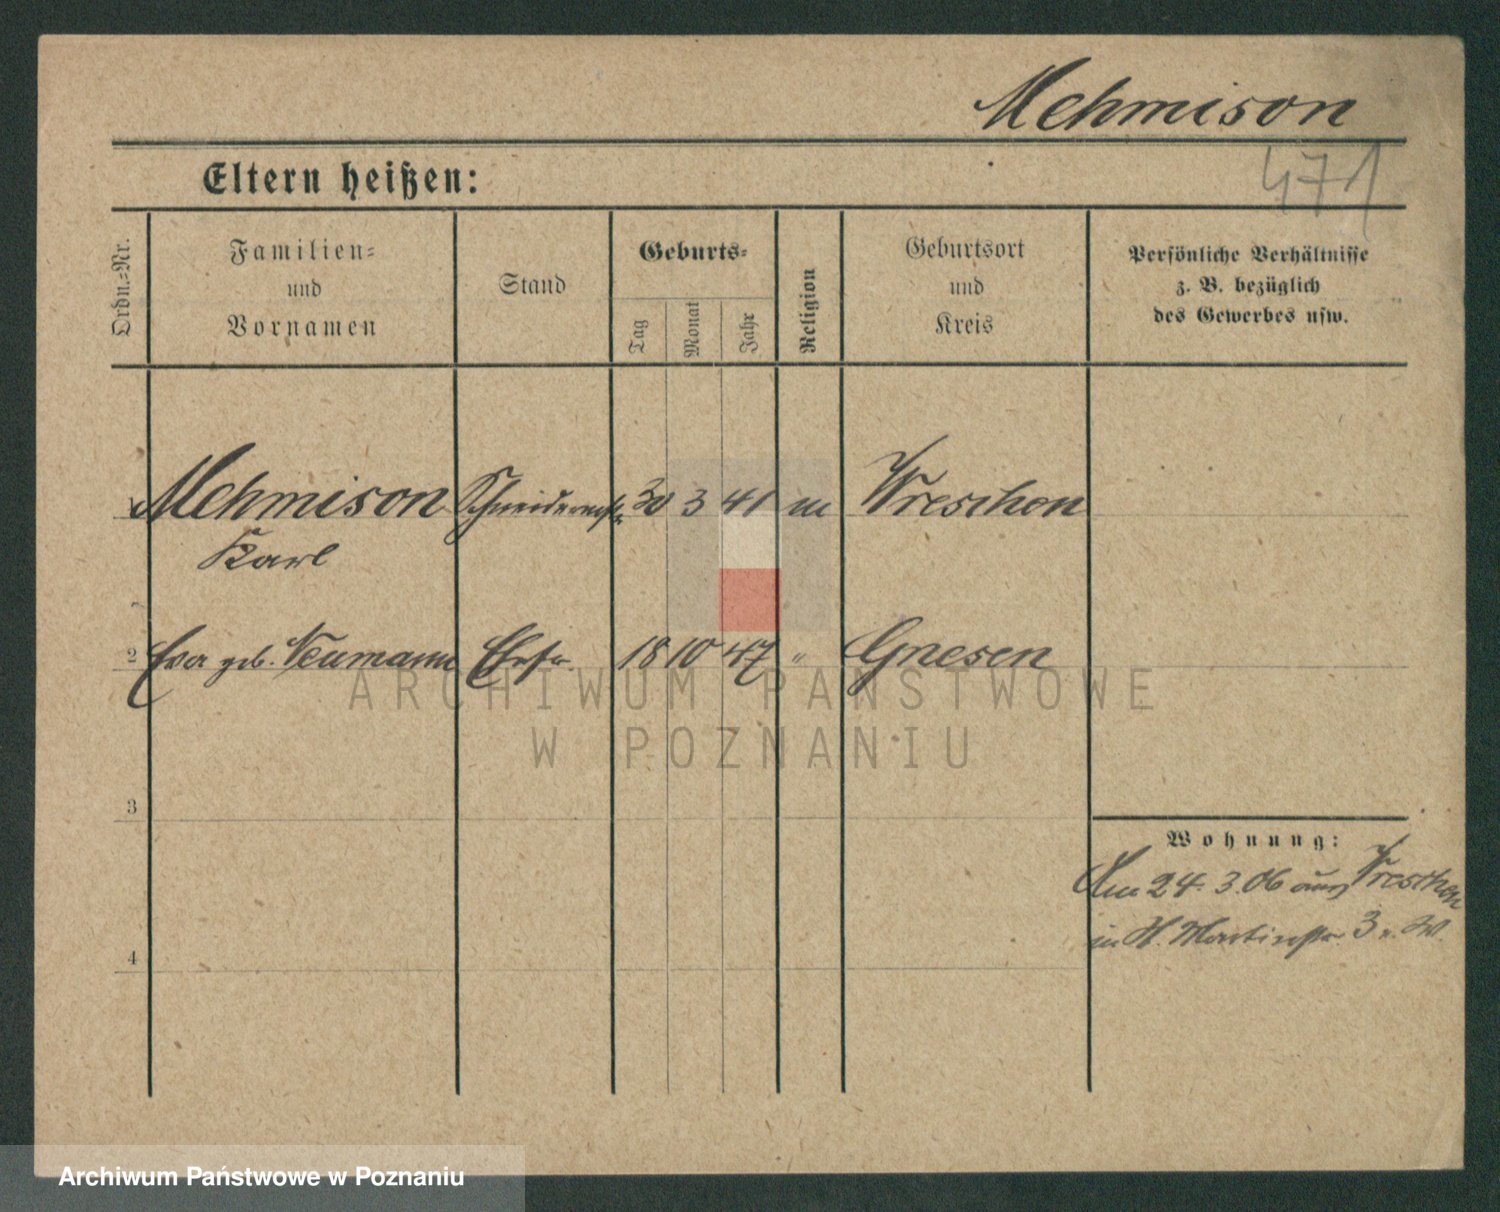 Mehmison
471
Eltern heißen:
Ordn.-Nr.
Familien-
und
Vornamen
Stand
Geburts-
Tag
Monat
Jahr
Religion
Geburtsort
und
Kreis
Persönliche Verhältnisse
z. B. bezüglich
des Gewerbes usw.
Mehmison Schneidermstr. 30 3 41 m Wreschen
Karl
2 Eva geb. Neumann Ehefr. 18 10 47 " Gnesen
ARCHIWUM PAŃSTWOWE
W POZNANIU
3
Wohnung:
Am 24. 3. 06 aus Wreschen
in St. Martinstr. 3
4
Archiwum Państwowe w Poznaniu